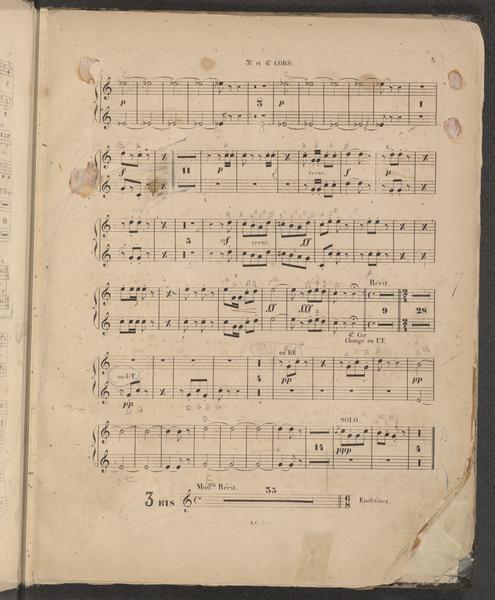 3e. et 4e. CORS.
5
p 3 p 1
f 11 p cresc. f p
3 sf cresc. ff
ff fff Récit. 9 28
4e. Cor
Change en UT.
en RÉ
en UT.
pp 4 pp pp
SOLO.
14 ppp 4
Modto Récit.
3 BIS 33 6/8 Enchaînez.
A.C.